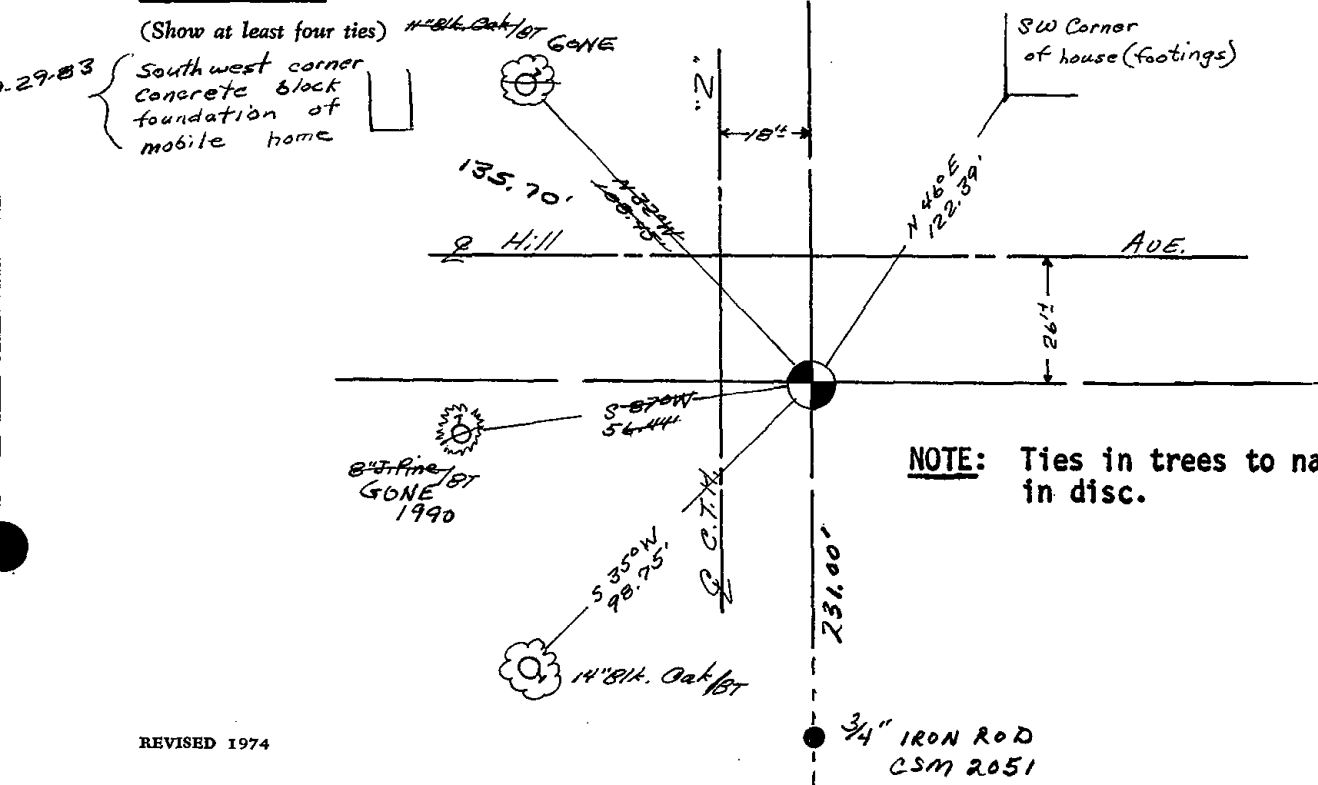 (Show at least four ties)
11" Blk. Oak/BT
GONE
.29-83
Southwest corner
concrete block
foundation of
mobile home
SW Corner
of house (footings)
"Z"
18'±
135.70'
N 32° W
N 46° E
122.39'
℄ Hill AVE.
26'±
S 87° W
56.44'
8" J. Pine/BT
GONE
1990
NOTE: Ties in trees to na
in disc.
℄ C.T.H.
S 35° W
98.75'
231.00'
14" Blk. Oak/BT
3/4" IRON ROD
CSM 2051
REVISED 1974